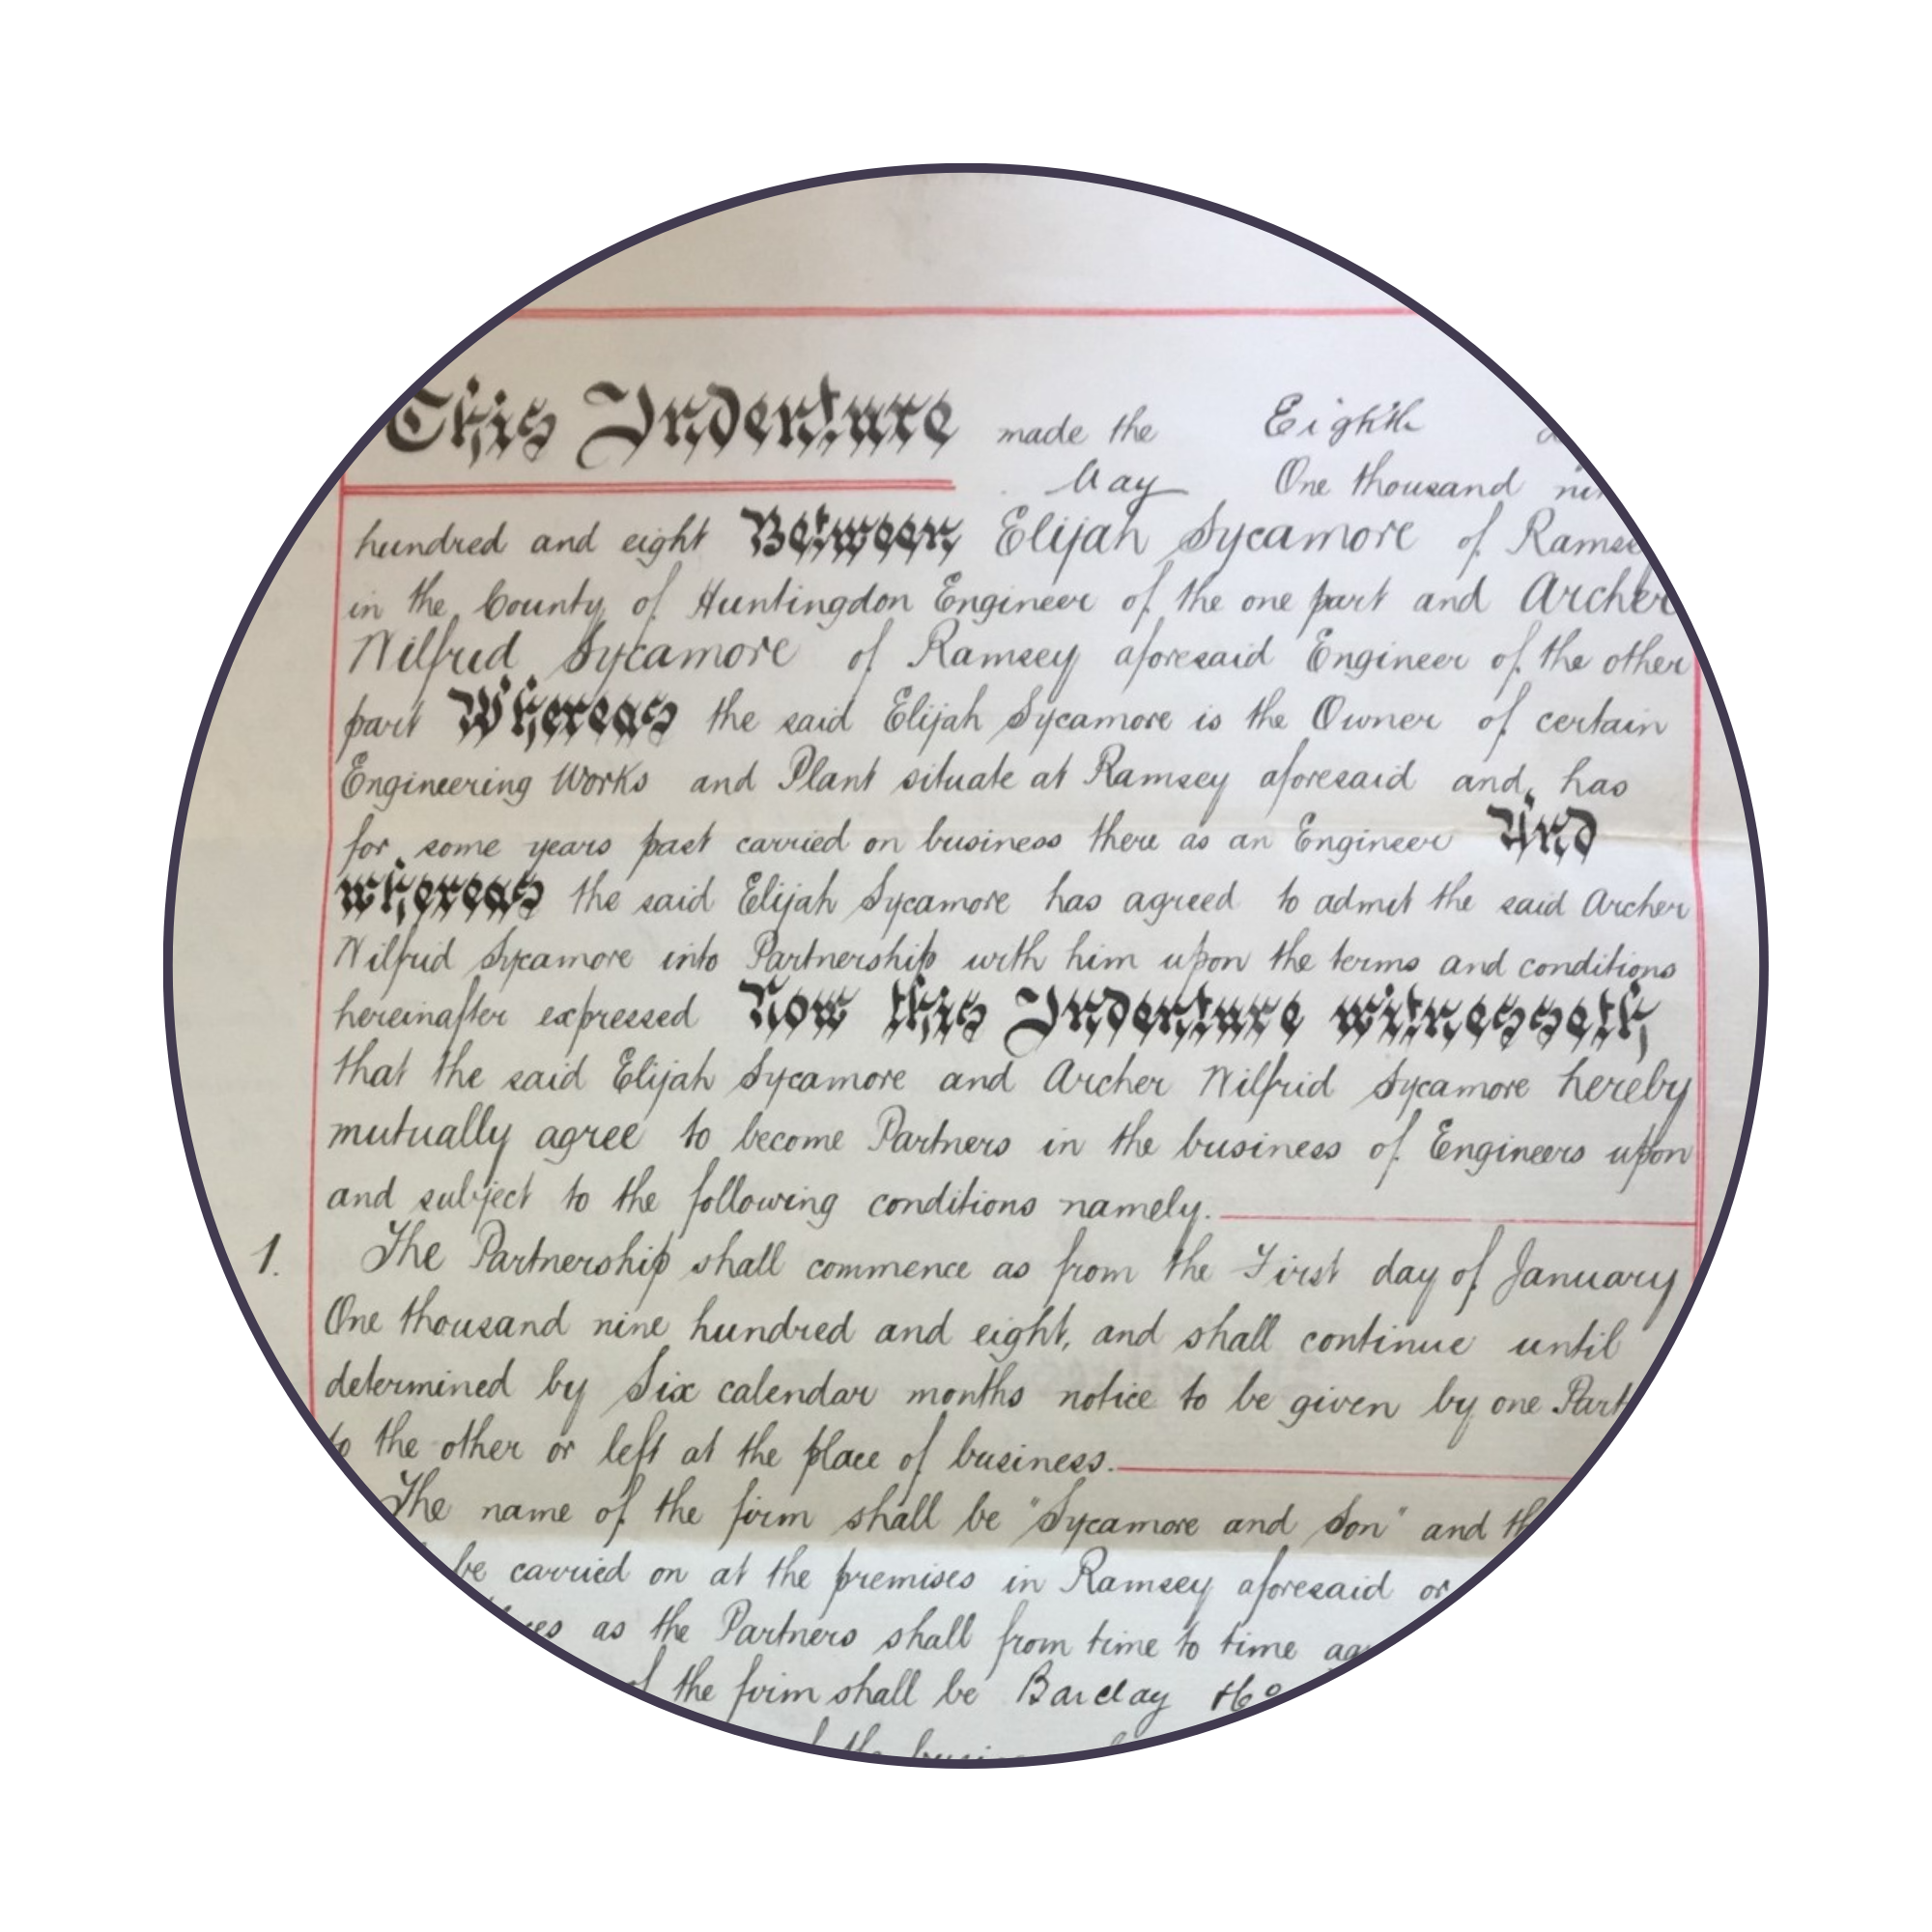 This Indenture made the Eighth
May One thousand
hundred and eight Between Elijah Sycamore of
in the County of Huntingdon Engineer of the one part and Archer
Wilfrid Sycamore of Ramsey aforesaid Engineer of the other
part Whereas the said Elijah Sycamore is the Owner of certain
Engineering Works and Plant situate at Ramsey aforesaid and has
for some years past carried on business there as an Engineer And
whereas the said Elijah Sycamore has agreed to admit the said Archer
Wilfrid Sycamore into Partnership with him upon the terms and conditions
hereinafter expressed Now this Indenture witnesseth
that the said Elijah Sycamore and Archer Wilfrid Sycamore hereby
mutually agree to become Partners in the business of Engineers upon
and subject to the following conditions namely.
1. The Partnership shall commence as from the First day of January
One thousand nine hundred and eight, and shall continue until
determined by Six calendar months notice to be given by one
to the other or left at the place of business.
The name of the firm shall be "Sycamore and Son" and
be carried on at the premises in Ramsey aforesaid or
as the Partners shall from time to time
of the firm shall be Barclay &Co
the